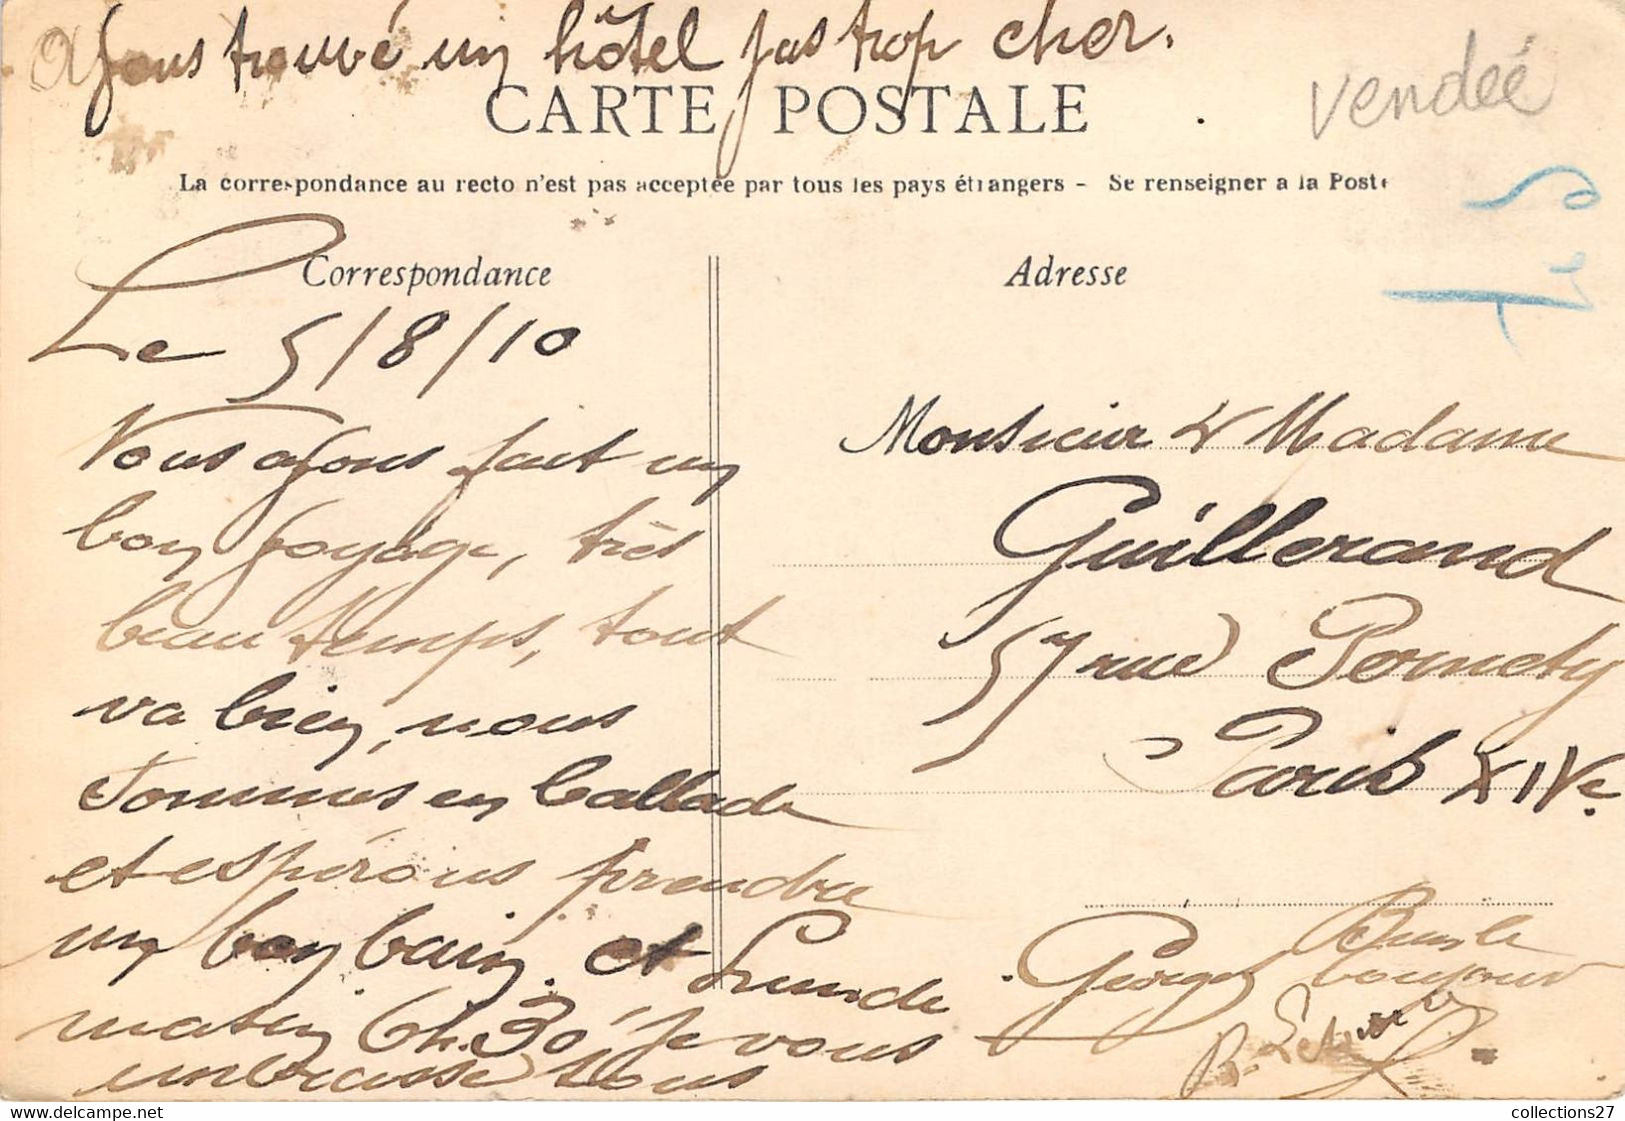 Avons trouvé un hôtel pas trop cher.
vendéé
CARTE POSTALE
La correspondance au recto n'est pas acceptée par tous les pays étrangers - Se renseigner a la Poste
Correspondance
Adresse
Le 5/8/10
Nous avons fait un
bon voyage, très
beau temps, tout
va bien, nous
sommes en ballade
et espérons prendre
un bon bain. et Lundi
matin 6h.30' je vous
embrasse tous
Georges
Monsieur & Madame
Guillerand
57 rue Pernety
Paris XIVe.
bonjour
collections27